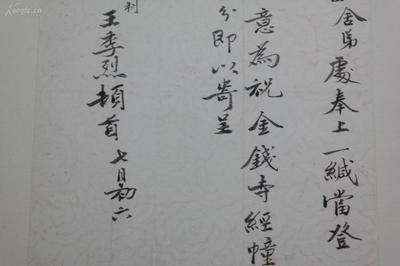 舍弟處奉上一緘當登
意為祝金錢寺經幢
分即以寄呈
刺
王季烈頓首 七月初六